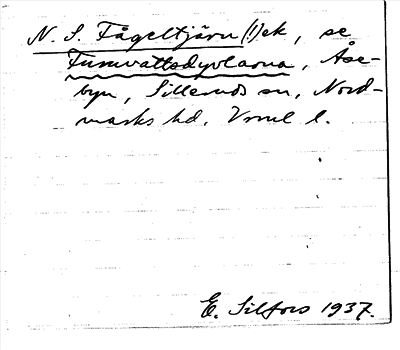 N. S. Fågeltjärn(!)ek, se
Furuvattsdyvlarna, Åse-
byn, Silleruds sn, Nord-
marks hd. Vrml l.
E. Silfors 1937.